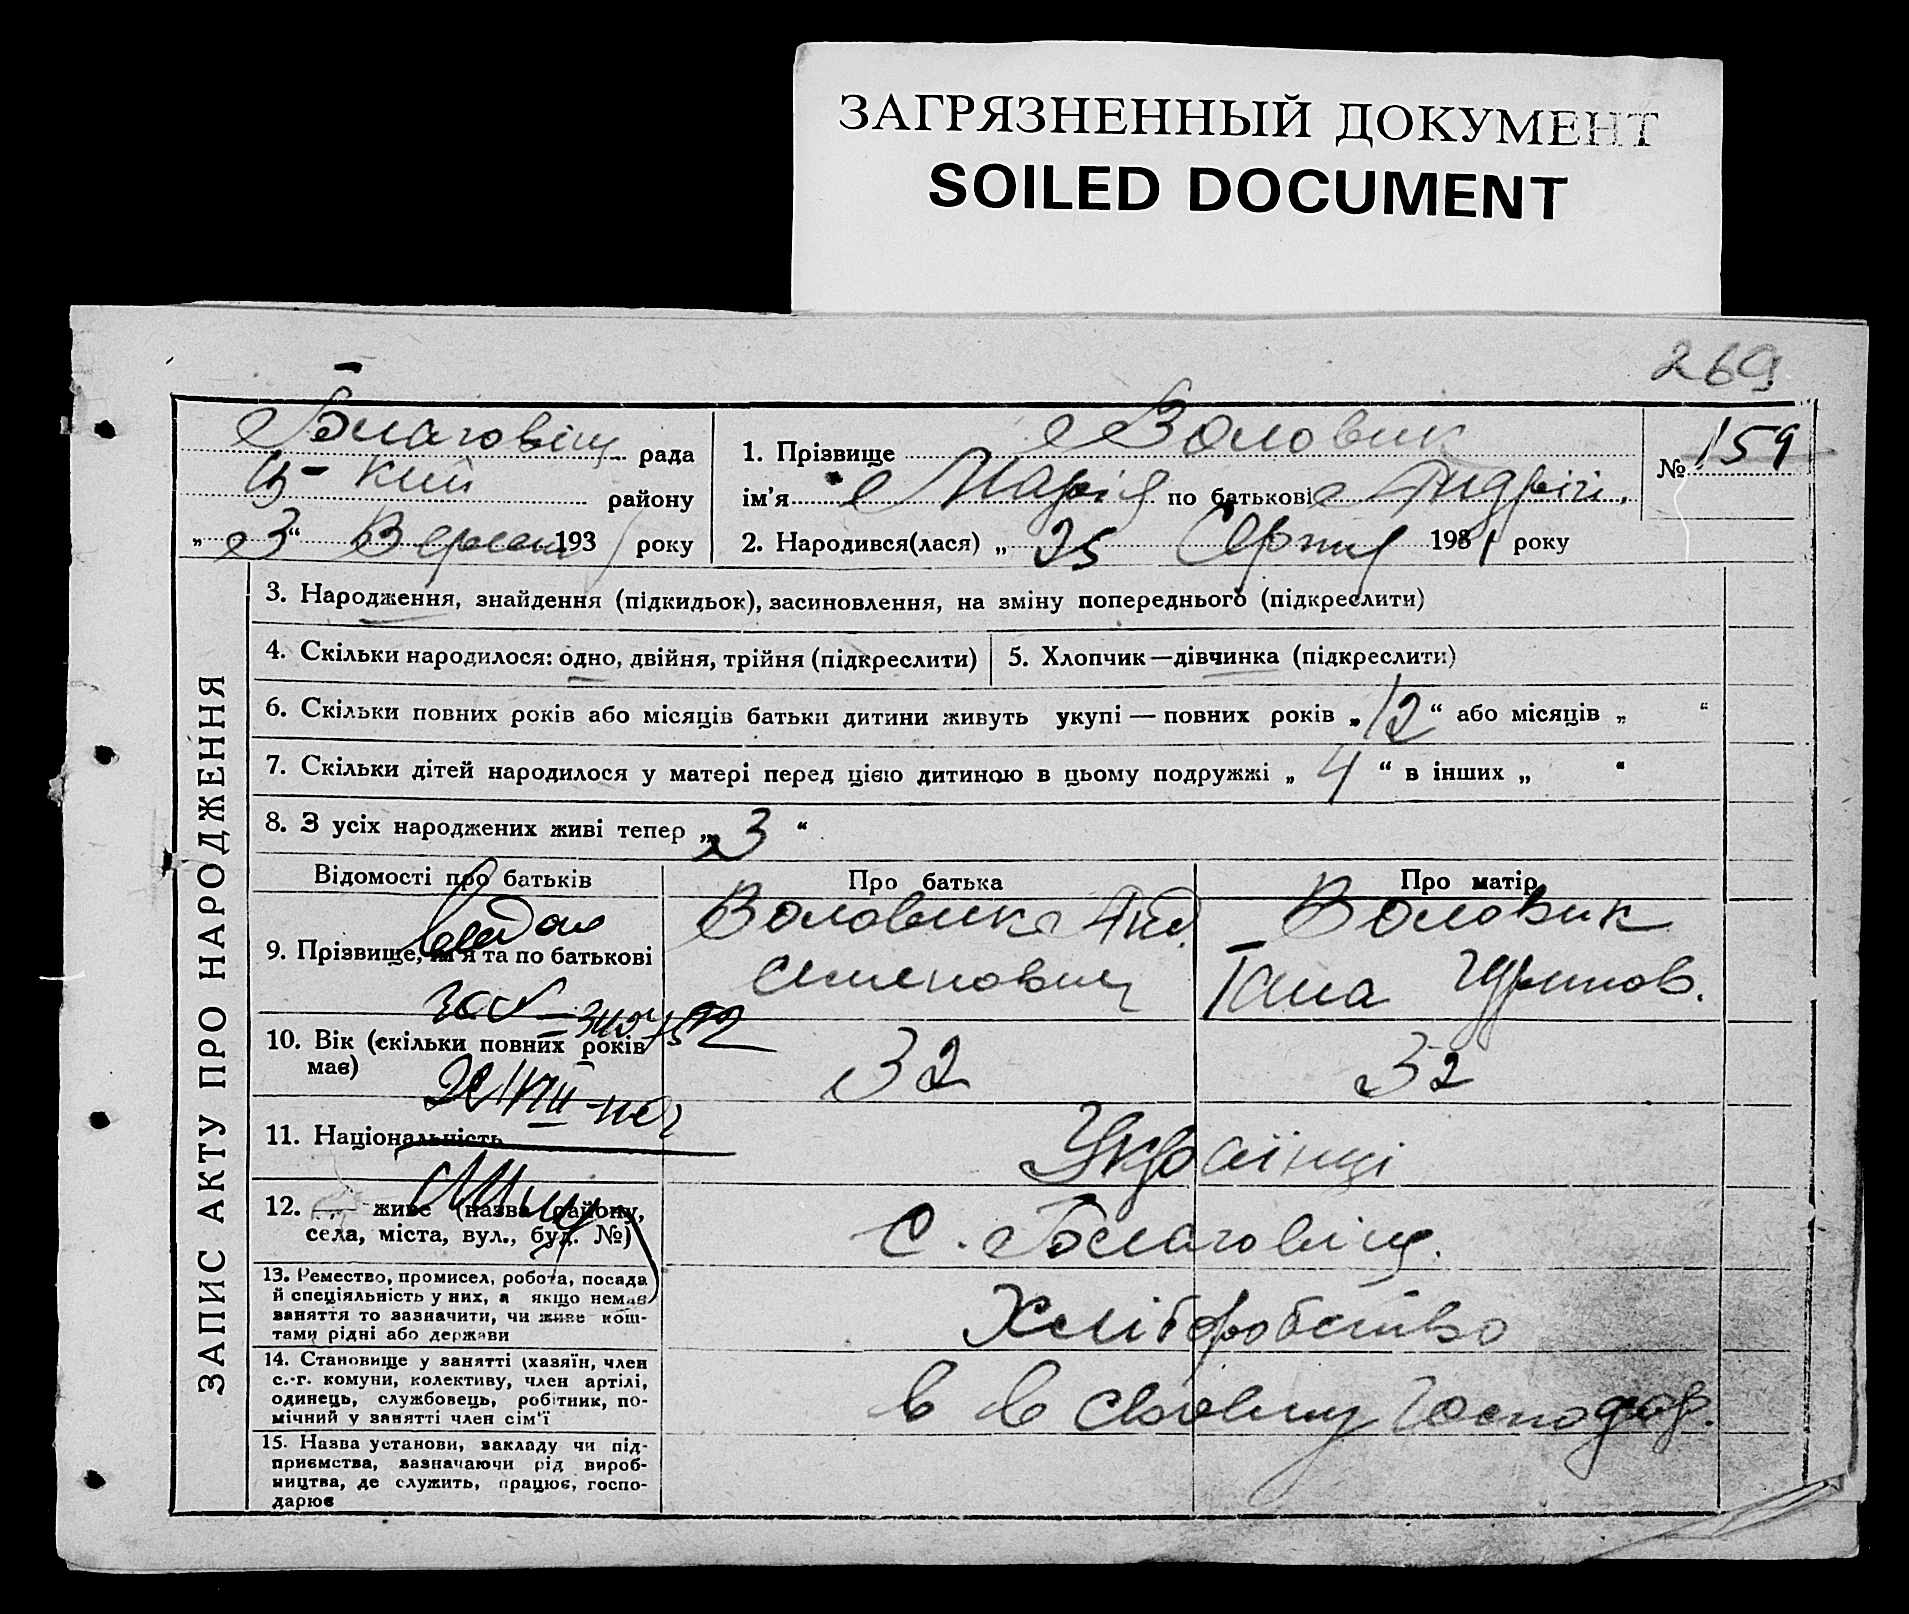 ЗАГРЯЗНЕННЫЙ ДОКУМЕНТ
SOILED DOCUMENT
269
Благовіщ. рада
району
„3“ Вересня 1931 року
1. Прізвище Воловик
ім'я Марія по батькові Андріїв.
2. Народився(лася) „25 Серпня 1931 року
№ 159
ЗАПИС АКТУ ПРО НАРОДЖЕННЯ
3. Народження, знайдення (підкидьок), засиновлення, на зміну попереднього (підкреслити)
4. Скільки народилося: одно, двійня, трійня (підкреслити)
5. Хлопчик—дівчинка (підкреслити)
6. Скільки повних років або місяців батьки дитини живуть укупі — повних років „12“ або місяців „ “
7. Скільки дітей народилося у матері перед цією дитиною в цьому подружжі „4“ в інших „ “
8. З усіх народжених живі тепер „3“
Відомості про батьків
Про батька
Про матір
9. Прізвище, ім'я та по батькові
Воловик Анд.
Семенович
Воловик
Гана
10. Вік (скільки повних років
має)
32
32
11. Національність
Українці
12. живе (назва району,
села, міста, вул., буд. №)
С. Благовіщ.
13. Ремество, промисел, робота, посада
й спеціяльність у них, а якщо немає
заняття то зазначити, чи живе кош-
тами рідні або держави
Хліборобство
14. Становище у занятті (хазяїн, член
с.-г. комуни, колективу, член артілі,
одинець, службовець, робітник, по-
мічний у занятті член сім'ї
в своєму господар.
15. Назва установи, закладу чи під-
приємства, зазначаючи рід вироб-
ництва, де служить, працює, госпо-
дарює